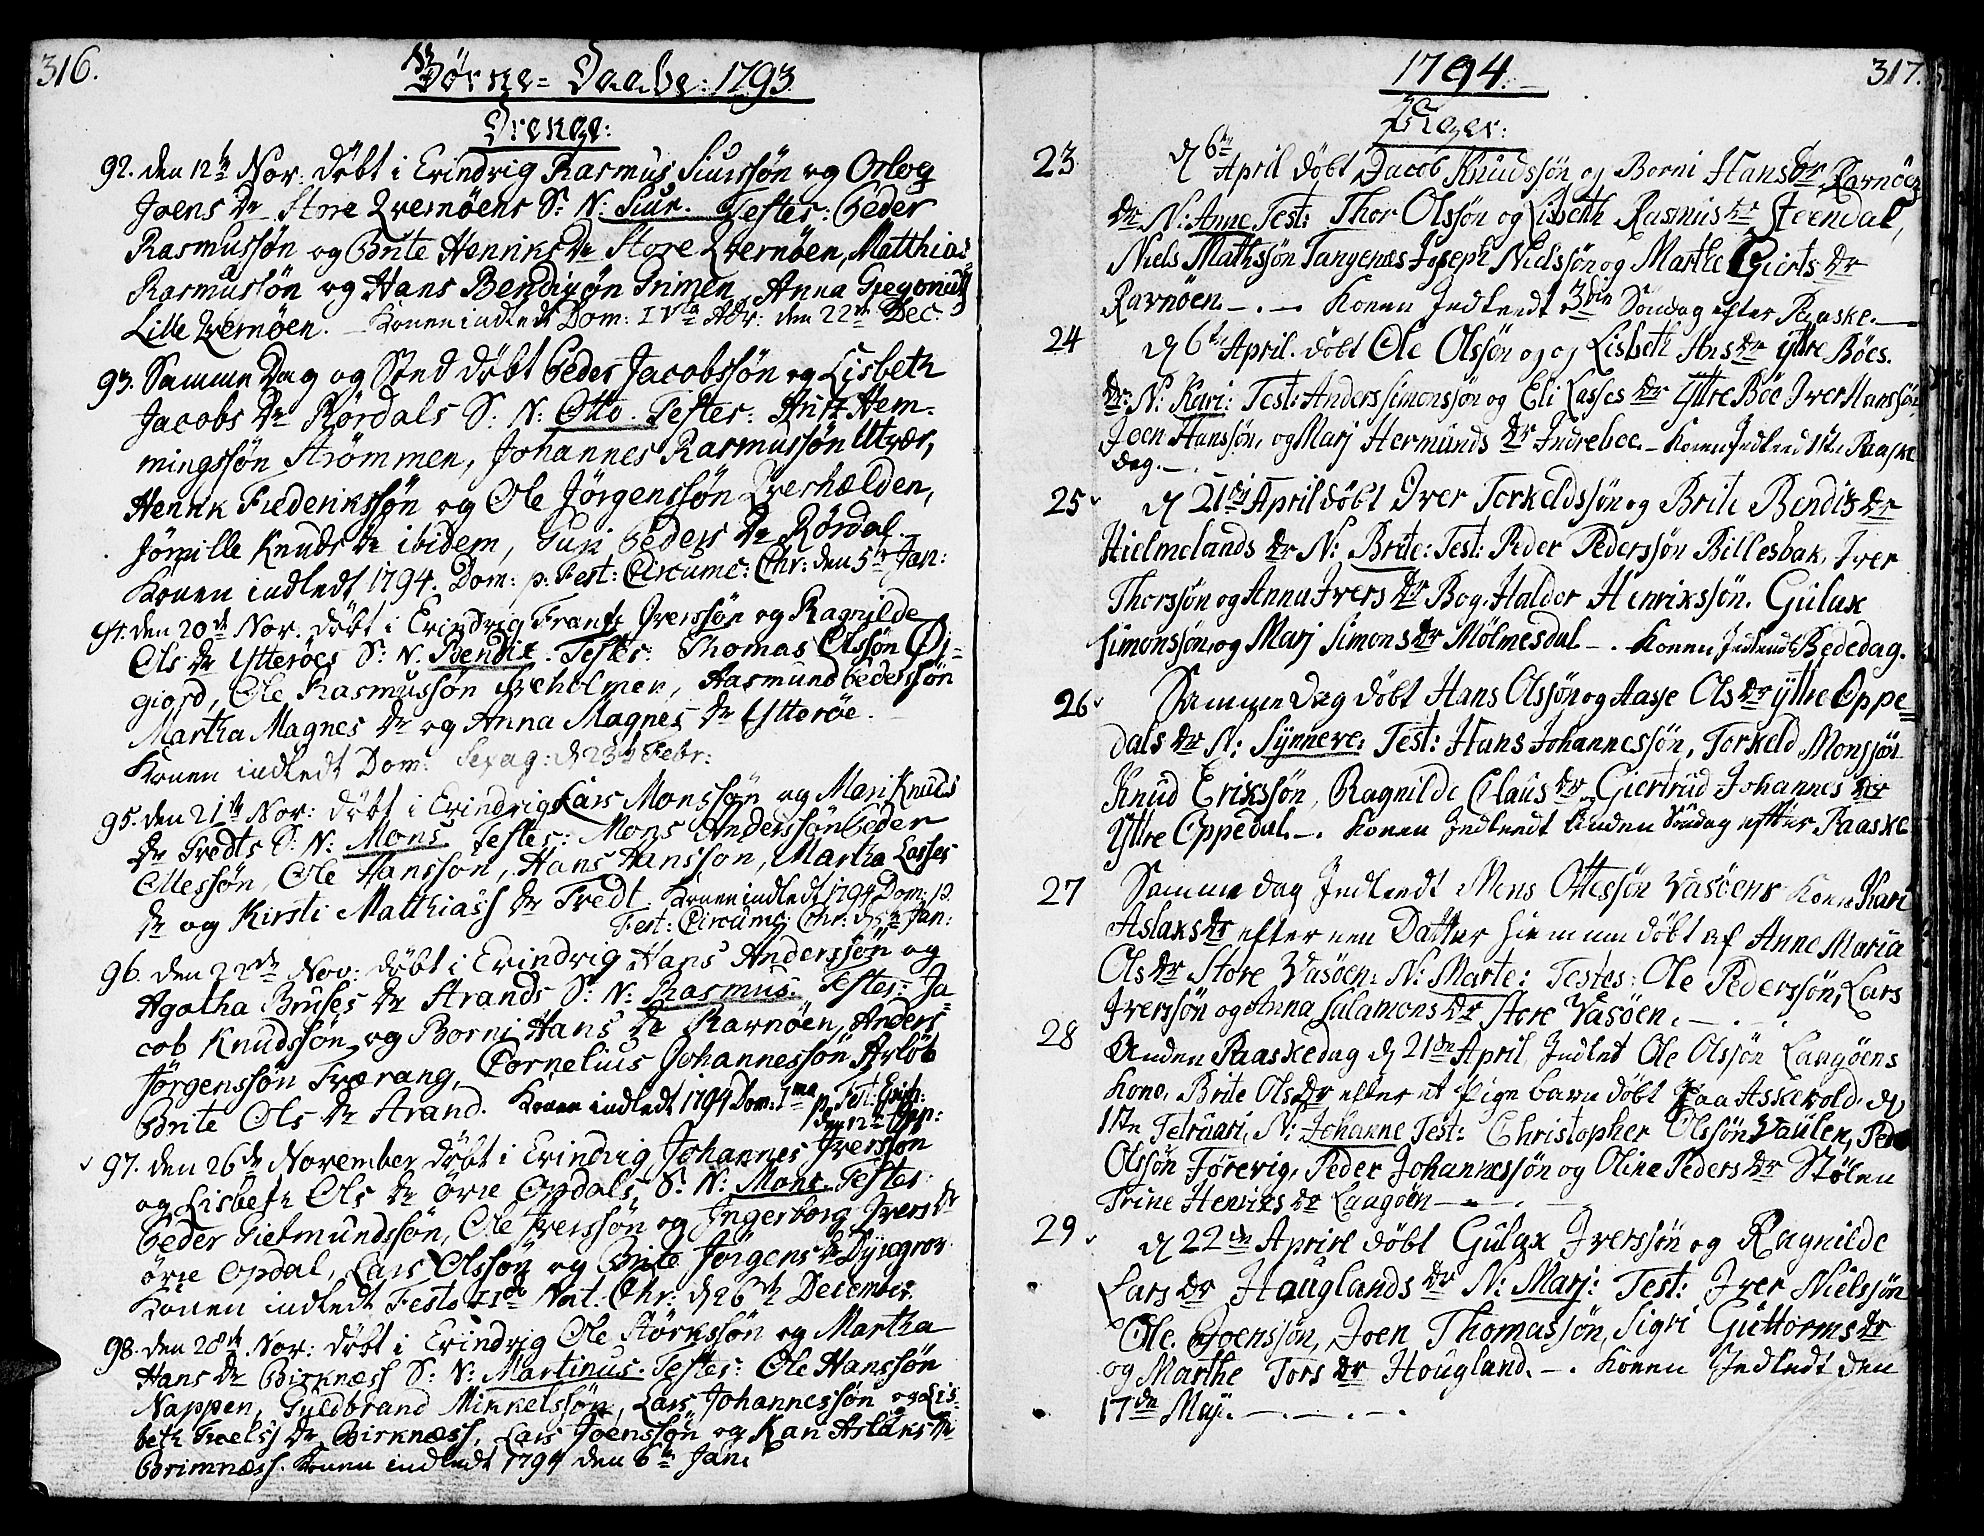 316.
Børne-Daabe: 1793.
Drenge:
92. den 12te Nor: døbt i Erindrig Rasmus Siurssøn og Orlog
Joens Dr Store Qvernøens S: N: Siur. Testes: Peder
Rasmussøn og Brite Henriks Dr Store Qvernøen, Matthias
Rasmussøn og Hans Bendixøn Grimen, Anna Gregorius
Lille Qvernøen. Konen indledt Dom: IVta Adv: den 22de Dec:
93. Samme Dag og Sted døbt Peder Jacobssøn og Lisbeth
Jacobs Dr Rørdals S: N: Otto. Testes: Anfin Hem-
mingssøn Strømmen, Johannes Rasmussøn Utvær,
Henrik Frederikssøn og Ole Jørgenssøn Qverhælden,
Jørnille Knuds Dr ibidem, Guri Peders Dr Rørdal.
Konen indledt 1794. Dom: p. Fest: Circumc: Chr: den 5te Jan:
94. den 20de Nov. døbt i Erindrig Frantz Iverssøn og Ragnilde
Ols Dr Ytterøes S: N: Bendix. Testes: Thomas Olssøn Øi-
giord, Ole Rasmussøn Noholmen, Aasmund Pederssøn
Martha Magnes Dr og Anna Magnes Dr Ytterøe.
Konen indledt Dom: Sexag: d 23de Febr:
95. den 21de Nov: døbt i Erindrig Lars Monssøn og Mari Knuds
Dr Tredts S: N: Mons Testes: Mons Anderssøn Peder
Ottessøn, Ole Hanssøn, Hans Hanssøn, Martha Lasses
Dr og Kirsti Matthiass Dr Tredt. Konen indledt 1794 Dom: p.
Fest: Circumc: Chr: d 5te Jan:
96. den 22de Nov: døbt i Erindrig Hans Anderssøn og
Agatha Bruses Dr Strands S: N: Rasmus. Testes: Ja-
cob Knudssøn og Borni Hans Dr Ravnøen, Anders
Jørgenssøn Træerang, Cornelius Johannessøn Arløt
Brite Ols Dr Strand. Konen indledt 1794 Dom: 1ma p. Fest: Epiph:
den 12te Jan:
97. den 26de November døbt i Erindrig Johannes Iverssøn
og Lisbeth Ols Dr Øvre Opdals, S: N: Mons. Testes:
Peder Gietmundssøn, Ole Iverssøn og Ingerborg Ivers Dr
Øvre Opdal, Lars Olssøn og Brite Jørgens Dr Dyngrov.
Konen indledt Festo IIda Nat. Chr: d 26de December.
98. den 28de Nov: døbt i Erindrig Ole Størkssøn og Martha
Hans Dr Birknæss S: N: Martinus. Testes: Ole Hanssøn
Nappen, Guldbrand Mikkelssøn, Lars Johannessøn og Lis-
beth Troels Dr Birknæss, Lars Joenssøn og Kari Aslaks Dr
Brimnæss. Konen indledt 1794 den 6te Jan:
1794.
317.
Piger:
23 d 6te April døbt Jacob Knudssøn og Borni Hans dr Ravnøens
dr N: Anne Test: Thor Olssøn og Lisbeth Rasmus dr Steendal,
Niels Mathssøn Tangenæs Joseph Nielssøn og Marthe Gierts dr
Ravnøen. Konen Indleedt 3die Søndag efter Paaske.
24 d 6te April. døbt Ole Olssøn og og Lisbeth Ans dr Yttre Bøes.
dr N: Kari: Test: Anders Simonssøn og Eli Lasses dr Yttre Bøe Iver Hanssøn
Joen Hanssøn, og Marj Hermunds dr Indrebøe. Konen Indleed 1ste Paaske
dag.
25 d 21de April døbt Iver Torkeldssøn og Brite Bendix dr
Hielmelands dr N: Brite: Test: Peder Pederssøn Billesbak, Iver
Thorssøn og Anna Ivers dr Bog. Haldor Henrikssøn. Gulax
Simonssøn, og Marj Simons dr Mølmesdal. Konen Indleedt Bededag.
26 Samme Dag døbt Hans Olssøn og Aase Ols dr Yttre Oppe-
dals dr N: Synneve: Test: Hans Johannessøn, Torkeld Monssøn
Knud Erikssøn, Ragnilde Claus dr Giertrud Johannes dr
Yttre Oppedal. Konen Indleedt Anden Søndag efter Paaske
27 Samme dag Indleedt Mons Ottessøn Vasøens Kone Kari
Aslaks dr efter een Datter hiemme døbt af Anne Maria
Ols dr Store Vasøen: N: Marte: Testes: Ole Pederssøn, Lars
Iverssøn og Anna Salamons dr Store Vasøen.
28 Anden Paaskedag d 21de April Indlet Ole Olssøn Laagøens
kone, Brite Ols dr efter et Pige barn døbt paa Askevold d
11te Februari, N: Johanne Test: Christopher Olssøn Vaulen, Peder
Olssøn Førevig, Peder Johannessøn og Oline Peders dr Stølen
Trine Henriks dr Laagøen
29 d 22de April døbt Gulax Iverssøn og Ragnilde
Lars dr Houglands dr N: Marj: Test: Iver Nielssøn
Ole Joenssøn, Joen Thomassøn, Sigri Guttorms dr
og Marthe Tors dr Hougland. Konen Indledt den
17de Maj.